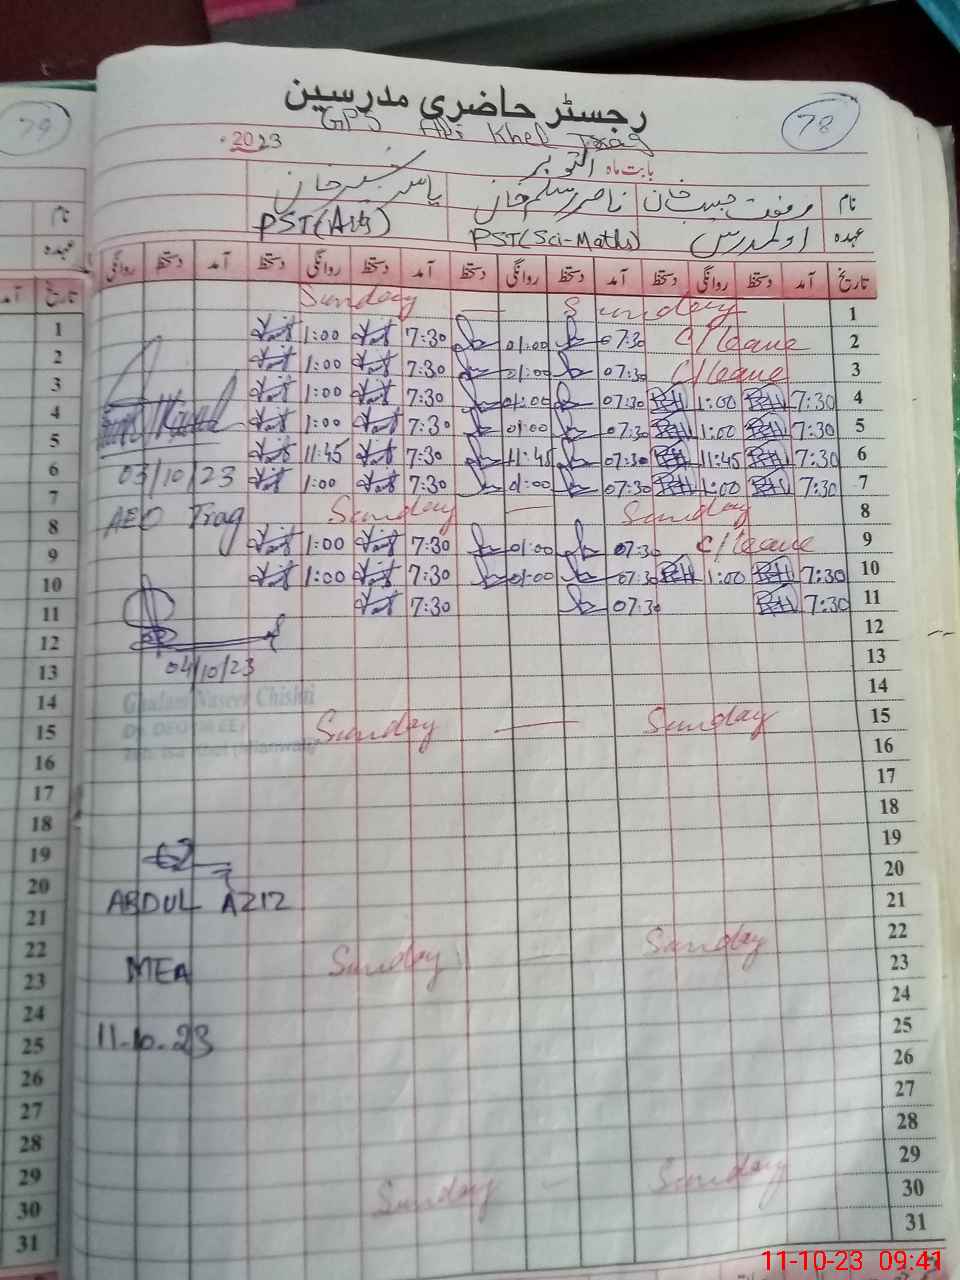 79
78
رجسٹر حاضری مدرسین
GPS Ali Khel Trag
2023
بابت ماہ اکتوبر
نام رفعت حبیب خان ناصر سلیم خان یاسر شبیر خان
عہدہ اول مدرس PST(Sci-Maths) PST(Arts)
تاریخ آمد دستخط روانگی دستخط آمد دستخط روانگی دستخط آمد دستخط روانگی دستخط آمد دستخط روانگی
1 Sunday — Sunday
2 C/leave 07:30 01:00 7:30 1:00
3 C/leave 07:30 01:00 7:30 1:00
4 7:30 1:00 07:30 01:00 7:30 1:00
5 7:30 1:00 07:30 01:00 7:30 1:00
6 7:30 11:45 07:30 11:45 7:30 11:45
7 7:30 1:00 07:30 01:00 7:30 1:00
8 Sunday — Sunday
9 C/leave 07:30 01:00 7:30 1:00
10 7:30 1:00 07:30 01:00 7:30 1:00
11 7:30 07:30 7:30
12
13
14
15 Sunday — Sunday
16
17
18
19
20
21
22 Sunday — Sunday
23
24
25
26
27
28
29 Sunday - Sunday
30
31
03/10/23
AEO Trag
04/10/23
Ghulam Naseer Chishti
ABDUL AZIZ
MEA
11-10-23
نام
عہدہ
تاریخ آمد
1
2
3
4
5
6
7
8
9
10
11
12
13
14
15
16
17
18
19
20
21
22
23
24
25
26
27
28
29
30
31
11-10-23 09:41